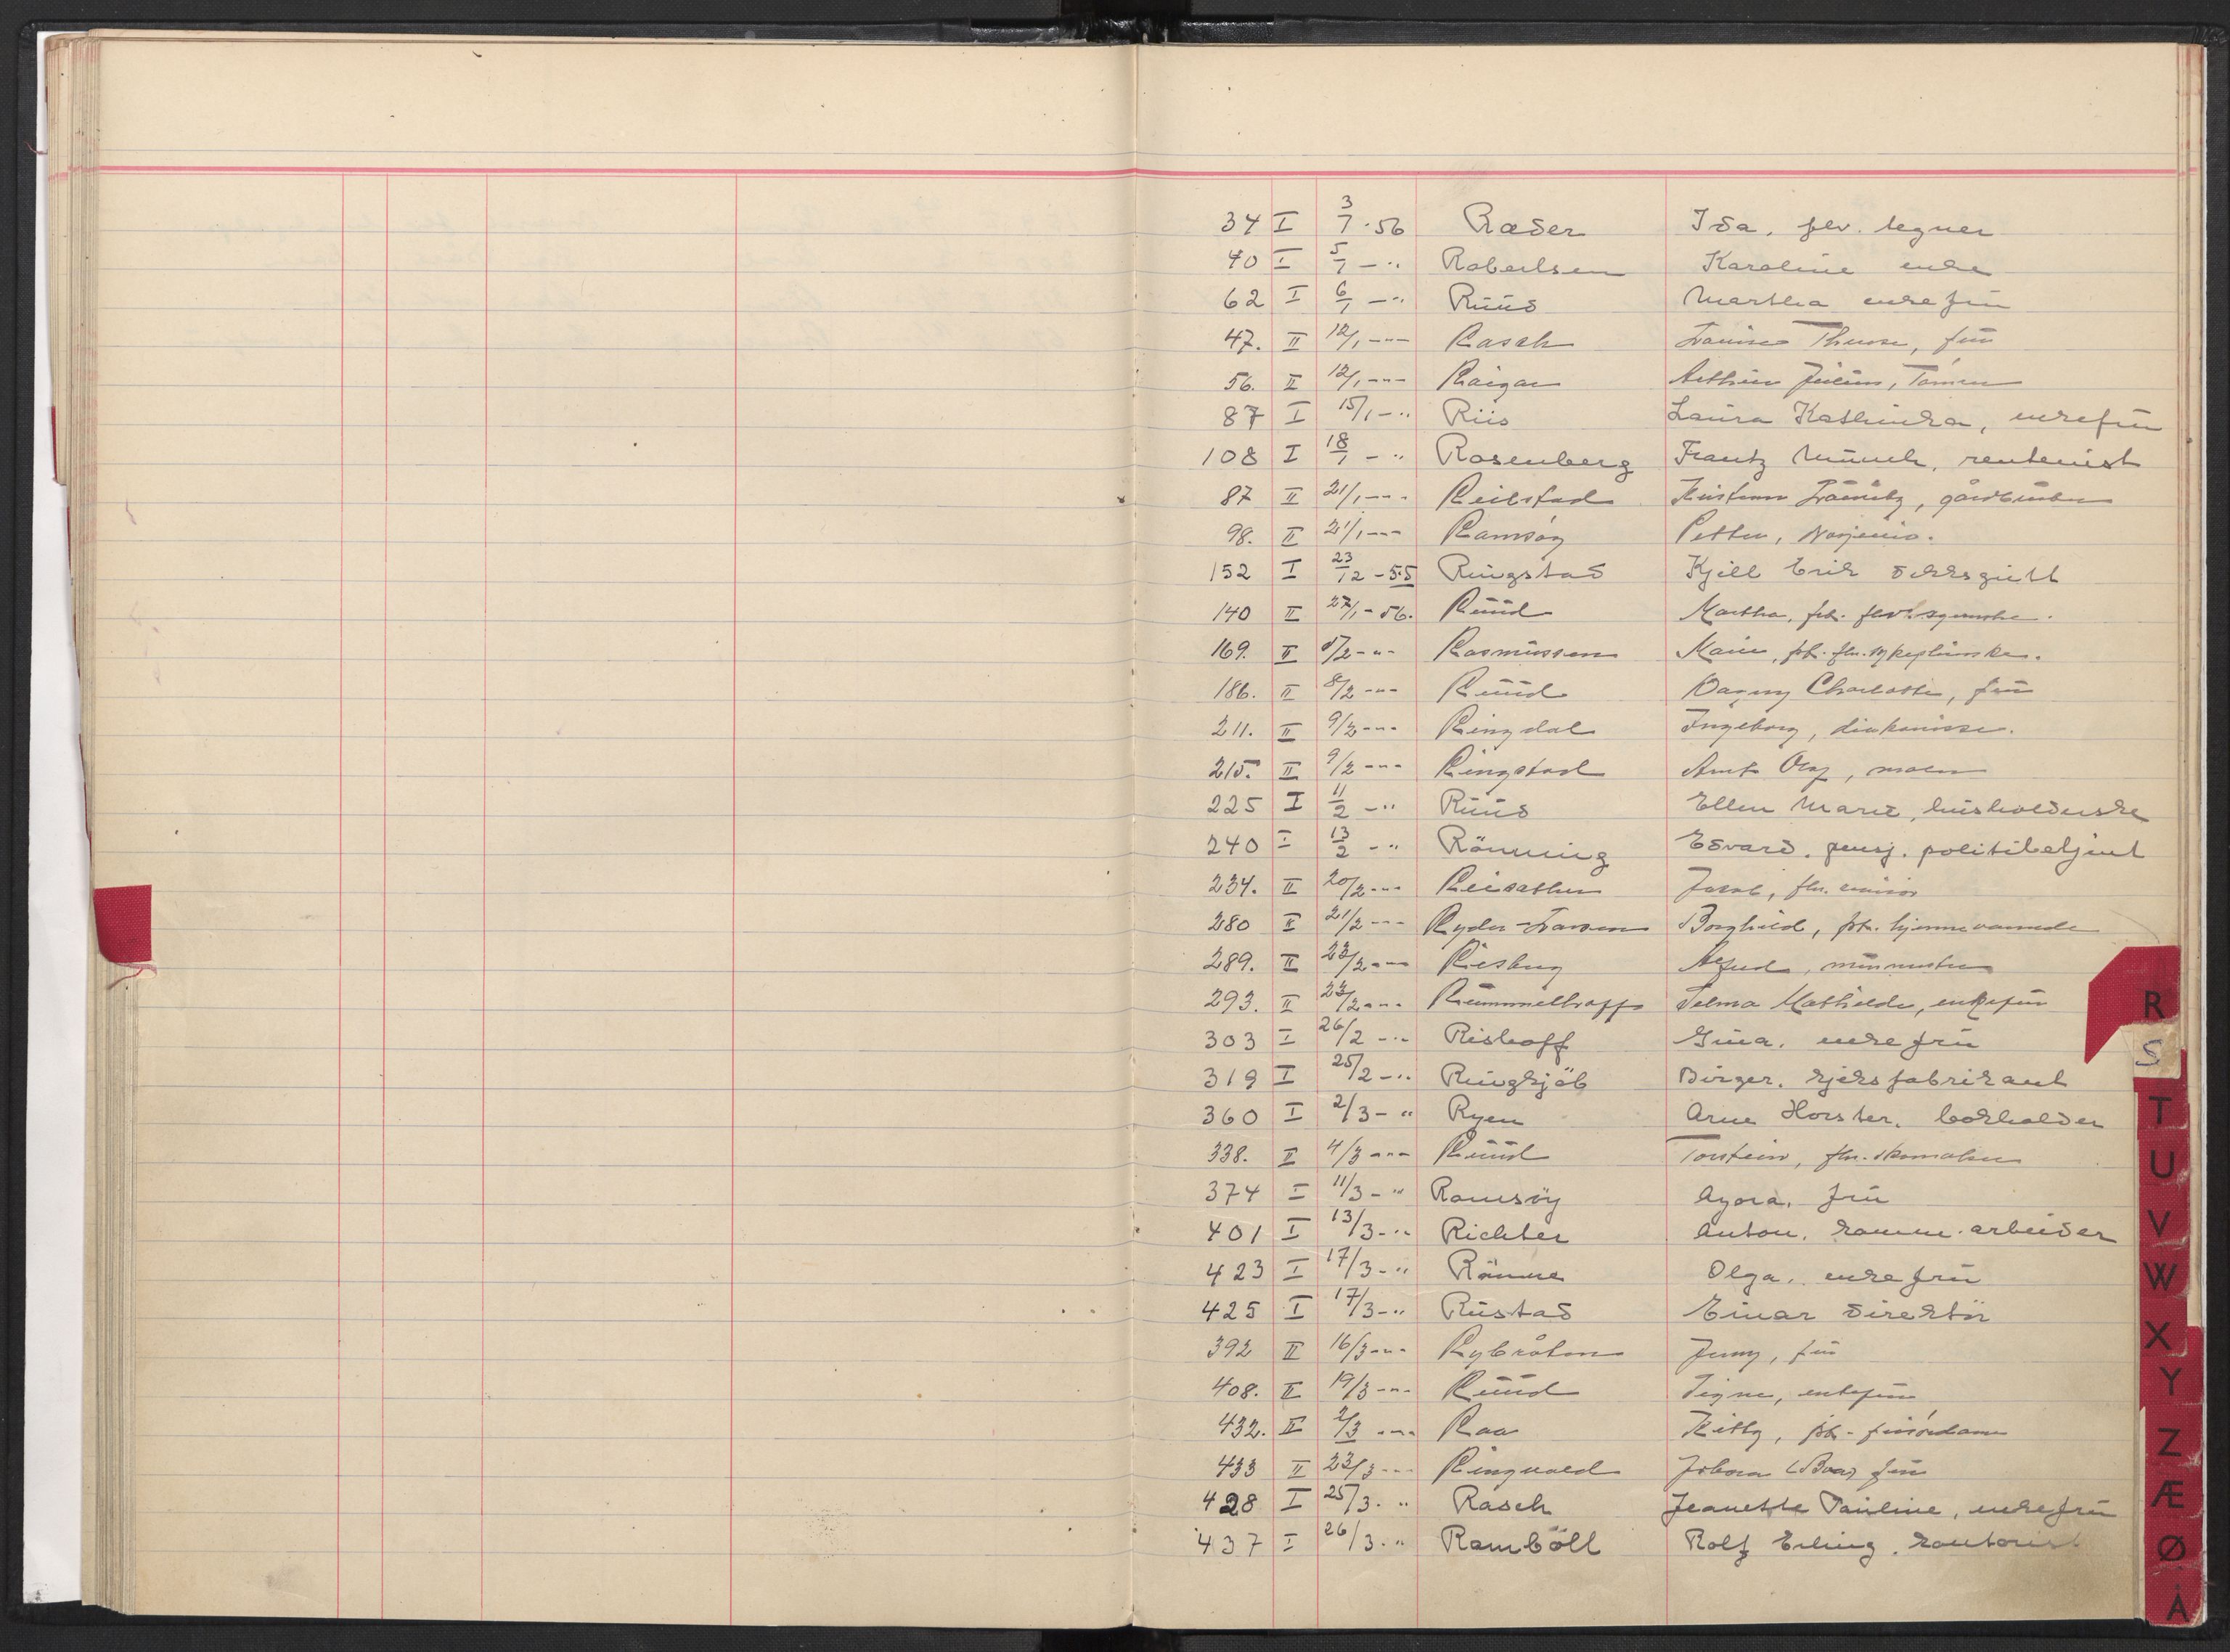 34 I 3/1 · 56 Ræder Ida, flv. tegner
40 I 5/1 - " Robertsen Karoline enke
62 I 6/1 - " Ruud Martha enkefru
47. II 12/1 - " - Rasch Thurse, fru
56. II 12/1 - " - Arthur Julius,
87 I 15/1 - " Riis Laura Kathinka, enkefru
108 I 18/1 - " Rosenberg Frantz Münch, rentenist
87 II 21/1 - " - Reilstad gårdbruker
98. II 21/1 - " - Ramsøy Petter,
152 I 23/12 - 55 Ringstad Kjell Erik dekksgutt
140 II 27/1 - 56. Ruud Martha, frk.
169. II /2 - " - Rasmussen frk. flv. sykepleierske.
186. II 8/2 - " - Ruud Dagny Charlotte, fru
211. II 9/2 - " - Ringdal Ingeborg, diakonisse.
215. II 9/2 - " - Ringstad Arnt Olaf, maler
225 I 11/2 - " Ruud Ellen Marie, husholderske
240 I 13/2 - " Rönning Edvard. pensj. politibetjent
234. II 20/2 - " - Jakob, flv.
280 II 21/2 - " - Ryder-Larsen Borghild, frk. hjemmeværende
289. II 23/2 - " - Riesberg murmester
293. II 23/2 - " - Rummelhoff Selma Mathilde, enkefru
303 I 26/2 - " Rishoff Gina. enkefru
319 I 25/2 - " Ringkjöb Birger. kjeksfabrikant
360 I 2/3 - " Ryen Arne Horster. bokholder
338. II 4/3 - " - Ruud Torstein, flv. skomaker
374 I 11/3 - " Ramsöy Agora. fru
401 I 13/3 - " Richter Anton. komm. arbeider
423 I 17/3 - " Rönne Olga. enkefru
425 I 17/3 - " Rustad Einar direktör
392 II 16/3 - " - Rybråten Jenny, fru
408. II 19/3 - " - Ruud Signe, enkefru
432. II 2/3 - " - Raa Kitty, frk. frisördame
433 II 23/3 - " - Ringvold Johova (Boa) fru
428 I 25/3 · " Rasch Jeanette Pauline, enkefru
437 I 26/3 · " Ramböll Rolf Erling. kontorist
R
S
T
U
V
W
X
Y
Z
Æ
Ø
Å